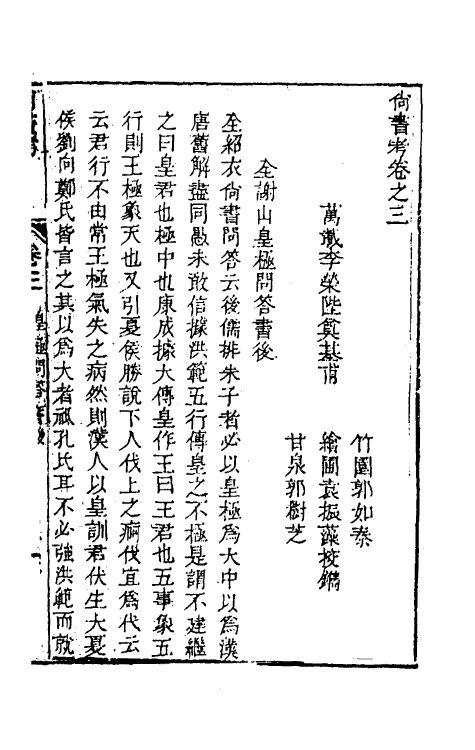 尙書考卷之三
萬載李榮陛奠基甫
竹園郭如泰
繪圃袁振藻校鐫
甘泉郭樹芝
全謝山皇極問答書後
全紹衣尙書問答云後儒排朱子者必以皇極爲大中以爲漢
唐舊解盡同愚未敢信據洪範五行傳皇之不極是謂不建繼
之曰皇君也極中也康成據大傳皇作王曰王君也五事象五
行則王極象天也又引夏侯勝說下人伐上之痾伐宜爲代云
云君行不由常王極氣失之病然則漢人以皇訓君伏生大夏
侯劉向鄭氏皆言之其以爲大者祗孔氏耳不必強洪範而就
卷三
皇極問答書後